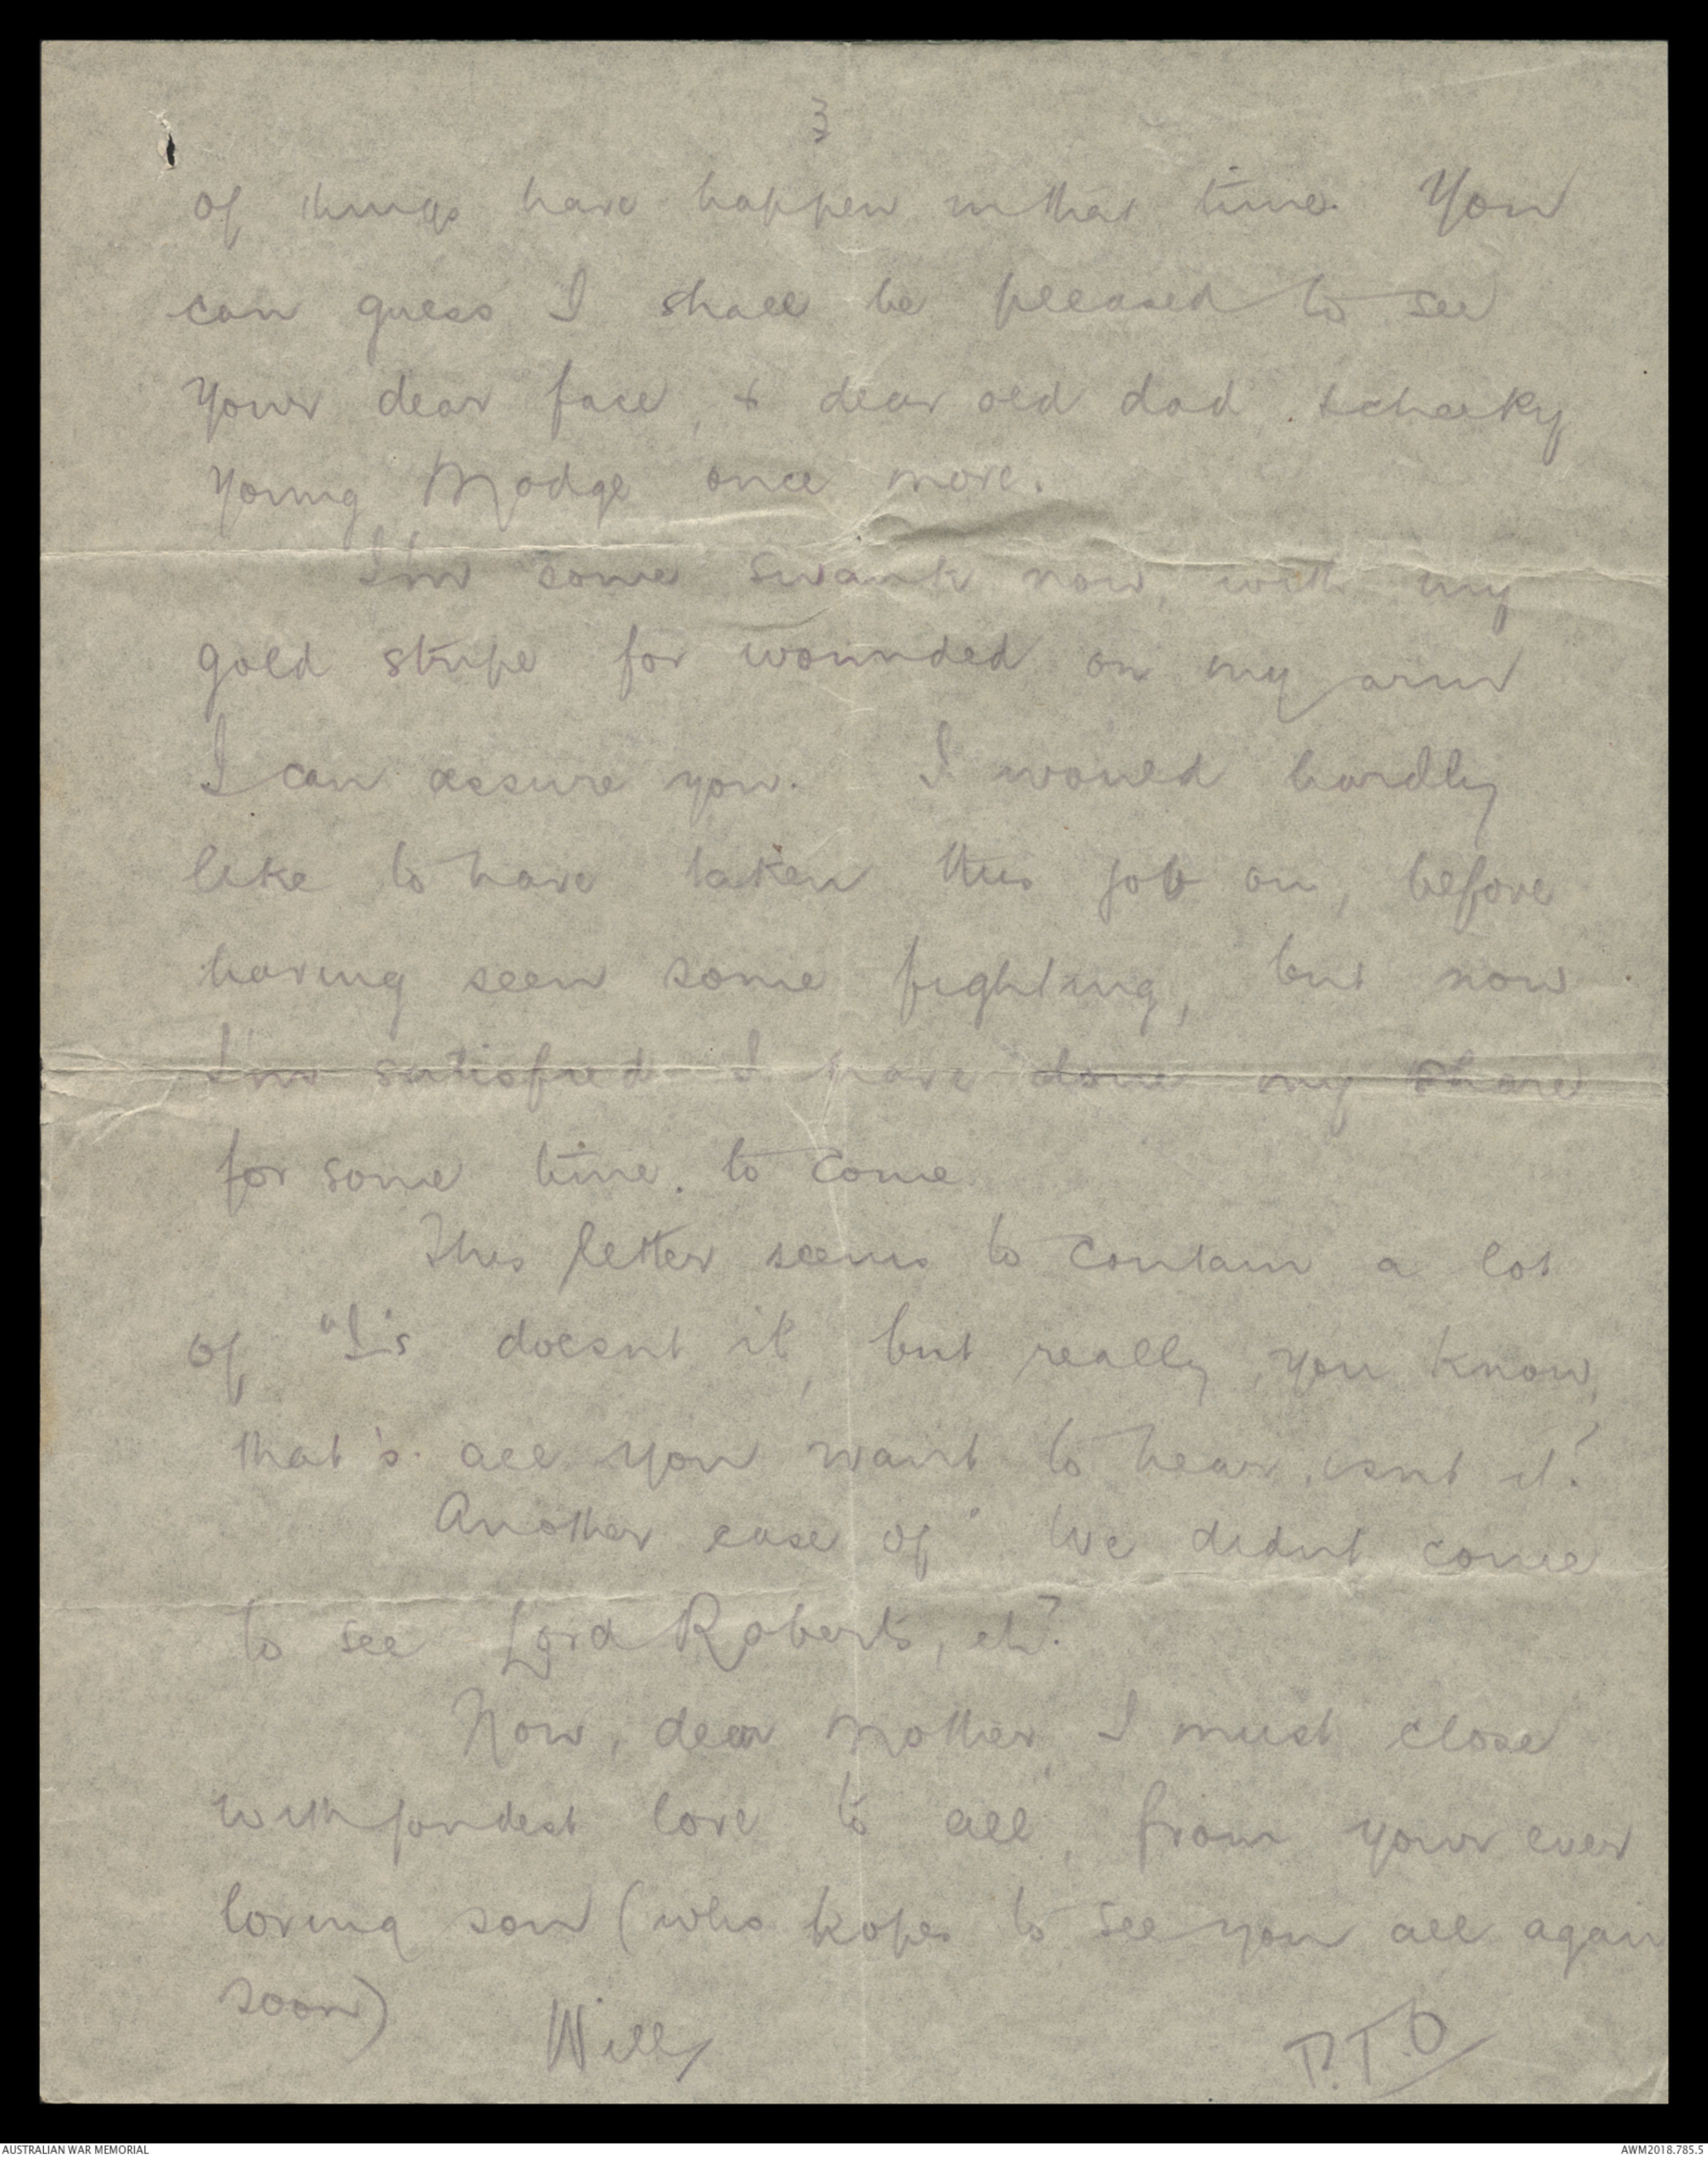 3
of things have happen in that time. You
can guess I shall be pleased to see
your dear face, & dear old dad, & cheeky
young Madge once more.
I'm some swank now, with my
gold stripe for wounded on my arm
I can assure you. I would hardly
like to have taken this job on, before
having seen some fighting, but now
I'm satisfied I have done my share
for some time. to come
This letter seems to contain a lot
of "I's doesnt it, but really, you know,
that's all you want to hear, isnt it?
Another case of "We didnt come
to see Lord Roberts, eh?
Now, dear Mother, I must close
with fondest love to all, from your ever
loving son (who hopes to see you all again
soon)
Will
P.T.O
AUSTRALIAN WAR MEMORIAL
AWM2018.785.5